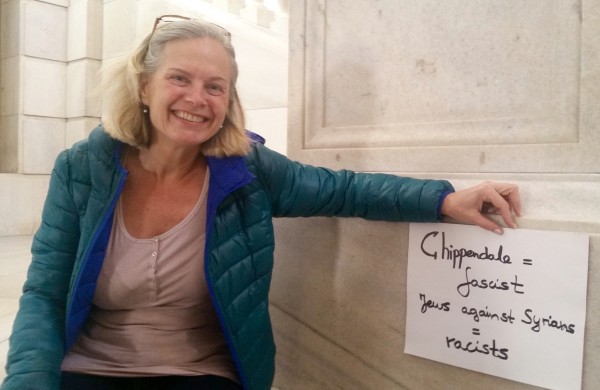 Chippendale =
fascist
Jews against Syrians
=
racists